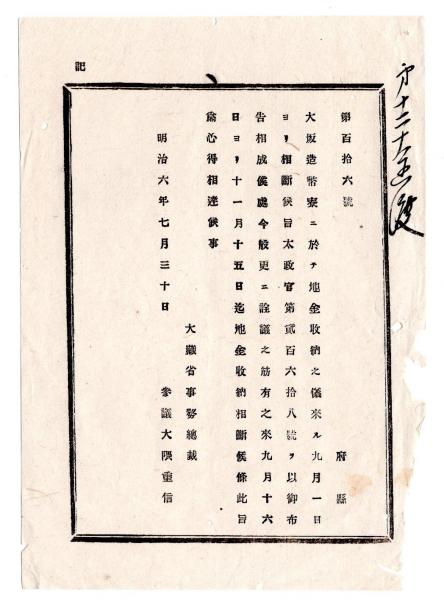 第百拾六號
府縣
大坂造幣寮ニ於テ地金收納之儀來ル九月一日
ヨリ相斷候旨太政官第貳百六拾八號ヲ以御布
告相成候處今般更ニ詮議之筋有之來九月十六
日ヨリ十一月十五日迄地金收納相斷候條此旨
爲心得相達候事
大藏省事務總裁
明治六年七月三十日
參議大隈重信
記